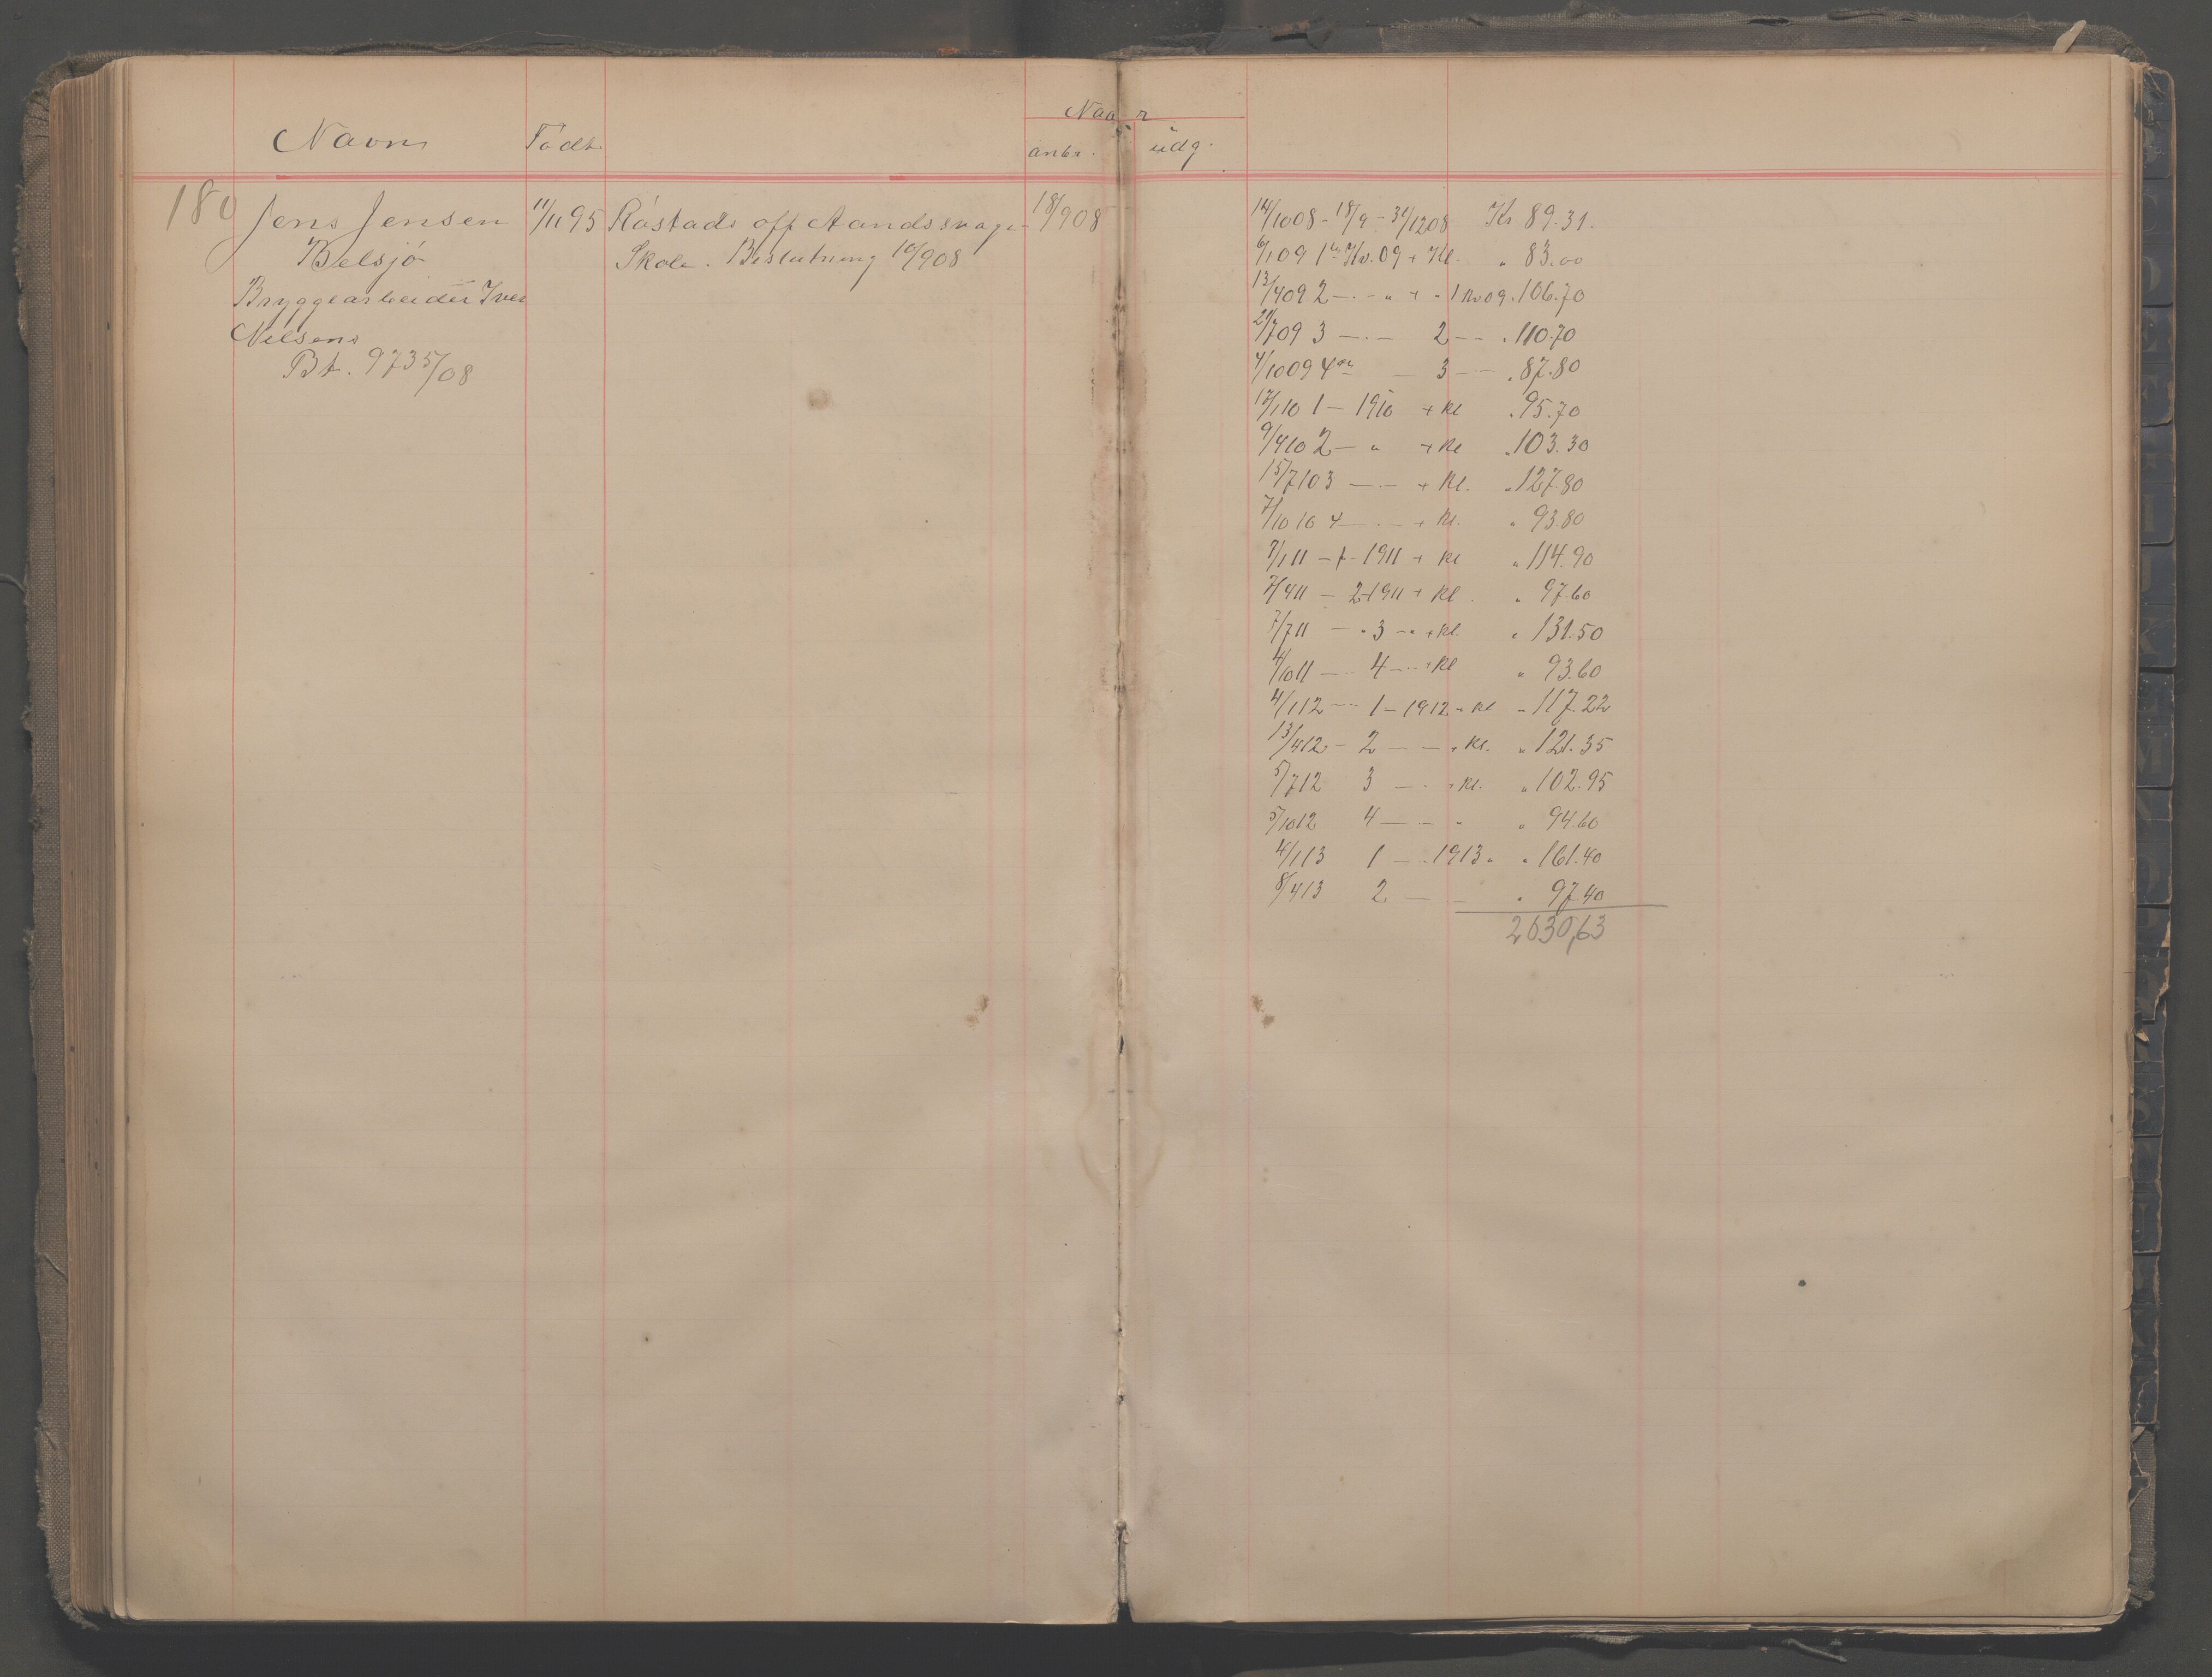 Naar
Navn Födt anbr. udg.
180 Jens Jensen 11/11 95 Röstads off Aandssvage- 18/9 08
Belsjö Skole. Beslutning 10/9 08
Bryggearbeider Iver
Nilsens
Bt. 9735/08
14/10 08 - 18/9 - 31/12 08 Kr 89.31.
6/1 09 1ste Kv. 09 + Kl. " 83.00
13/4 09 2 — " + " 1 Kv 09 . 106.70
29/7 09 3 — · — 2 — — . 110.70
4/10 09 4de — 3 — . 87.80
12/1 10 1 — 1910 + Kl . 95.70
9/4 10 2 — " + Kl . 103.30
15/7 10 3 — · — + Kl. . 127.80
7/10 10 4 — · — + Kl. " 93.80
7/1 11 — 1 — 1911 + Kl " 114.90
7/4 11 — 2 - 1911 + Kl. " 97.60
7/7 11 — " 3 — " + Kl. " 131.50
4/10 11 — 4 — + Kl " 93.60
4/1 12 — 1 — 1912 " Kl " 117.22
13/4 12 — 2 — — " Kl. " 121.35
5/7 12 3 — · " Kl. " 102.95
5/10 12 4 — — " " 94.60
4/1 13 1 — 1913 " " 161.40
8/4 13 2 — — " 97.40
2030,63